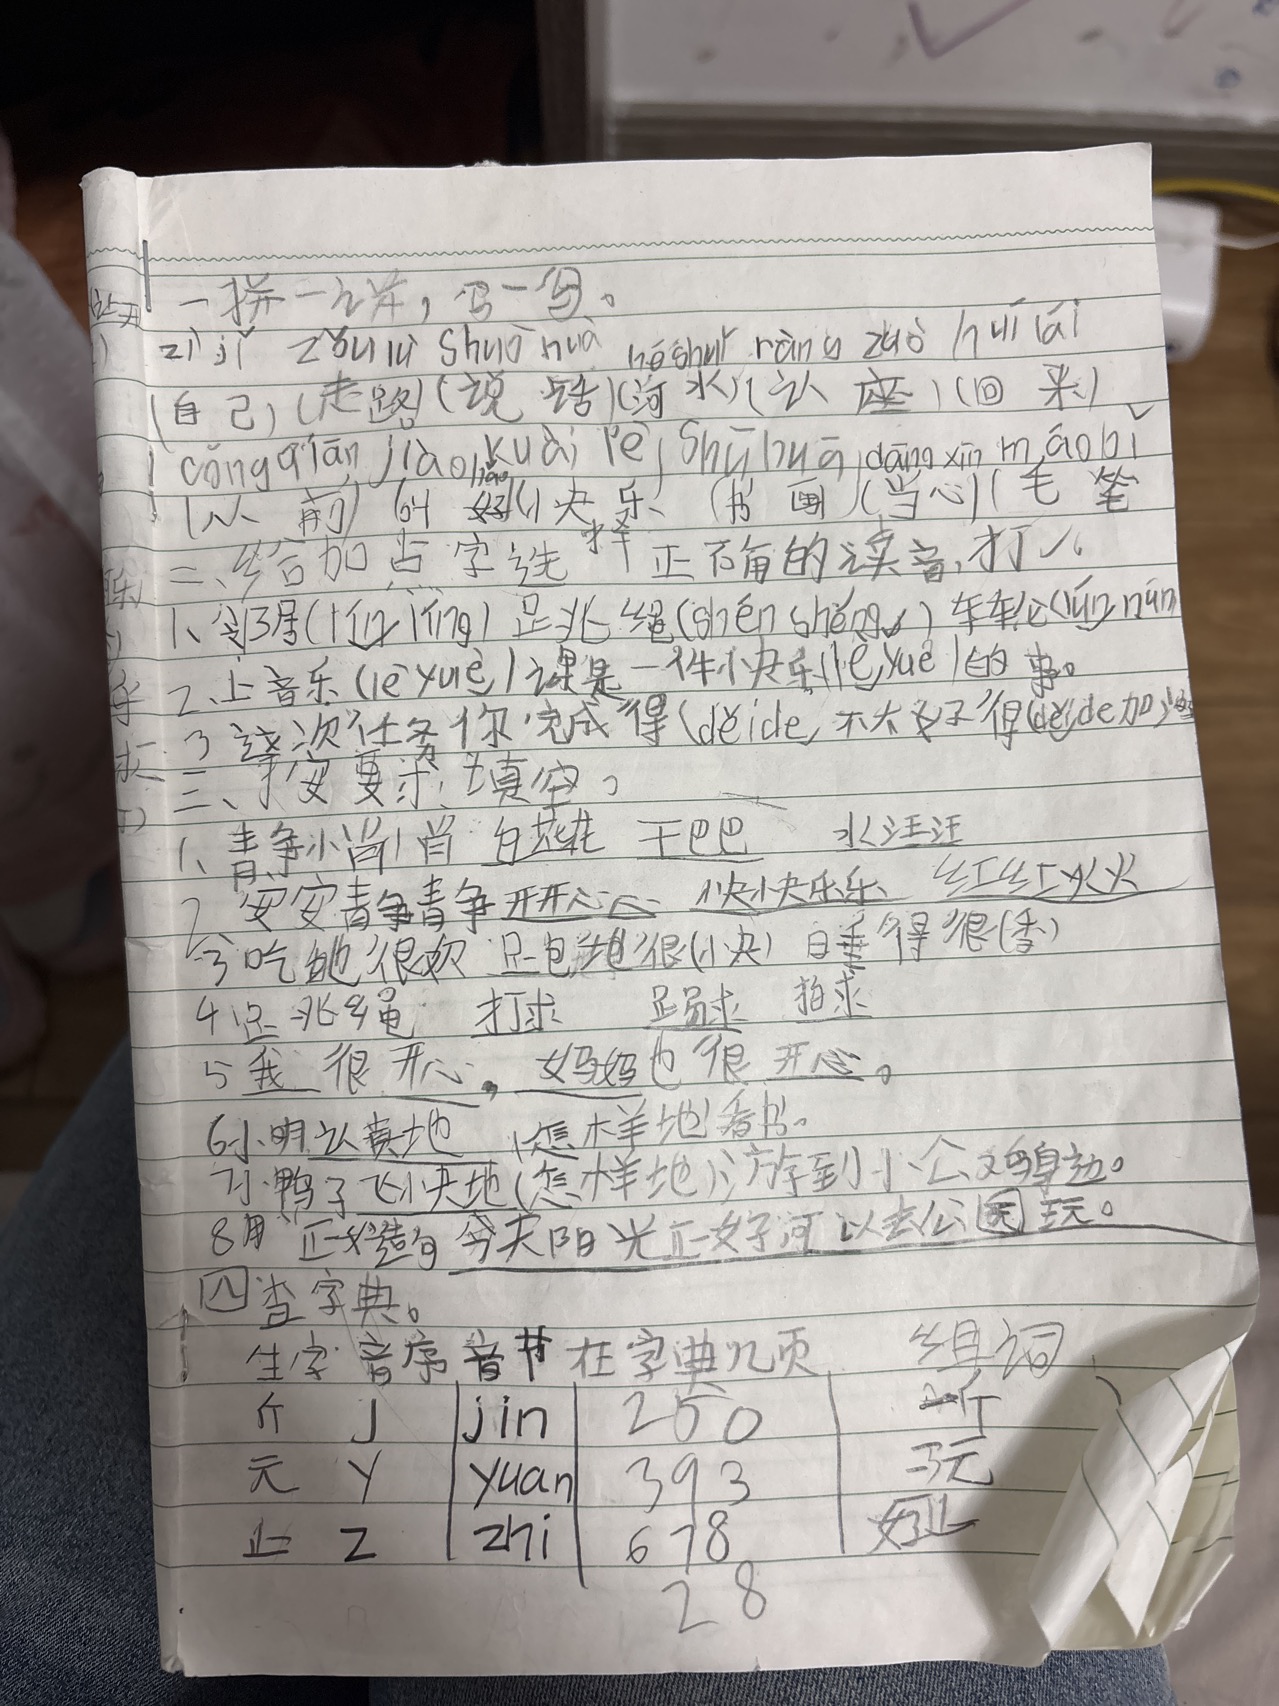 一拼一拼，写一写。
zì jǐ zǒu lù shuō huà hé shuǐ ràng zuò huí lái
(自己)(走路)(说话)(河水)(认座)(回来)
cóng qián jiào hǎo kuài lè shū huà dāng xīn máo bǐ
(从前)(叫好)(快乐)(书画)(当心)(毛笔
二、给加点字选择正确的读音,打√.
1、邻居(lín líng) 跳绳(shén shéng) 车轮(lún nún
2、上音乐(lè yuè)课是一件快乐(lè yuè)的事。
3 这次任务你完成得(děi de 不太好 得(děi de 加
三、按要求填空。
1、静悄悄 白 干巴巴 水汪汪
2 安安静静 开开心心 快快乐乐 红红火火
3 吃地很欢 跑地很(快) 睡得很(香)
4 跳绳 打球 踢球 拍球
5 我 很 开心，妈妈也很开心。
6 小明认真地 (怎样地)看书。
7 小鸭子飞快地(怎样地)游到小公鸡身边。
8 用 正好造句 今天阳光正好河以去公园玩。
四 查字典。
生字 音序 音节 在字典几页 组词
斤 J jin 250 一斤
元 Y yuan 393
止 Z zhi 678
28